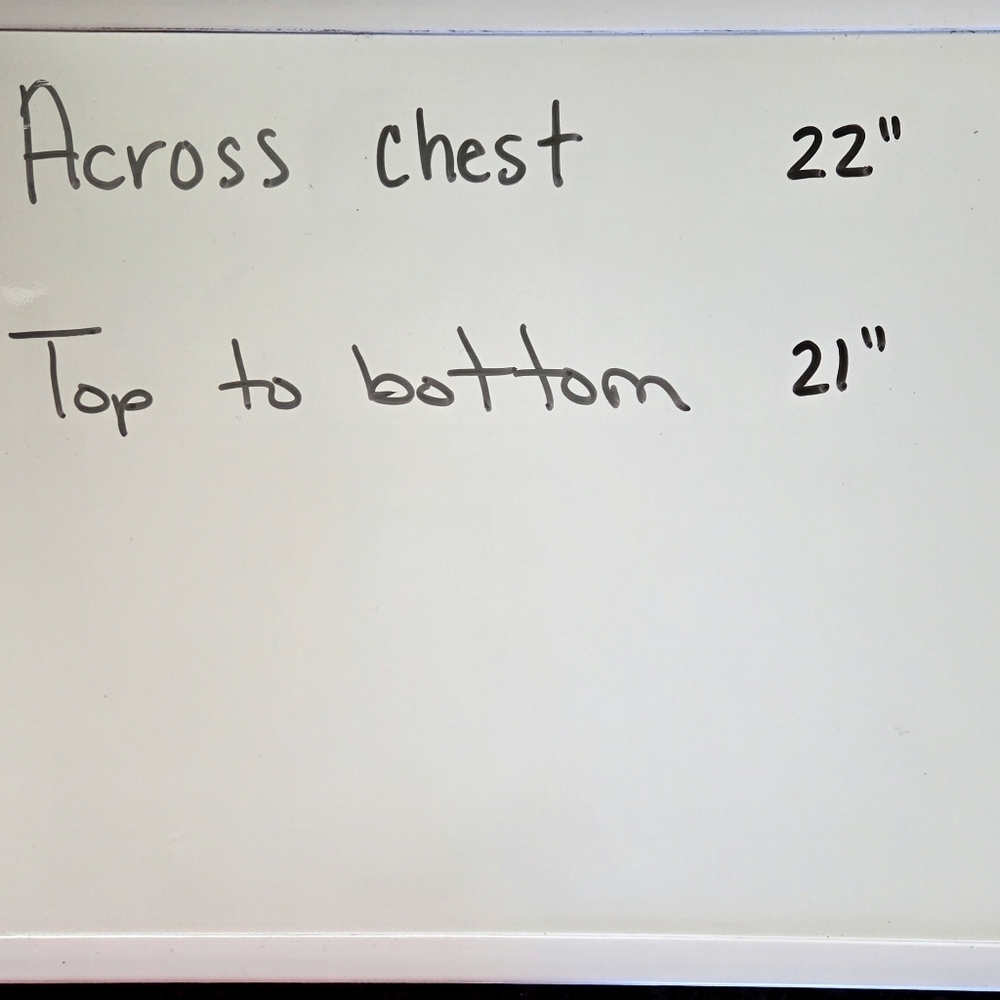 Across chest 22"
Top to bottom 21"